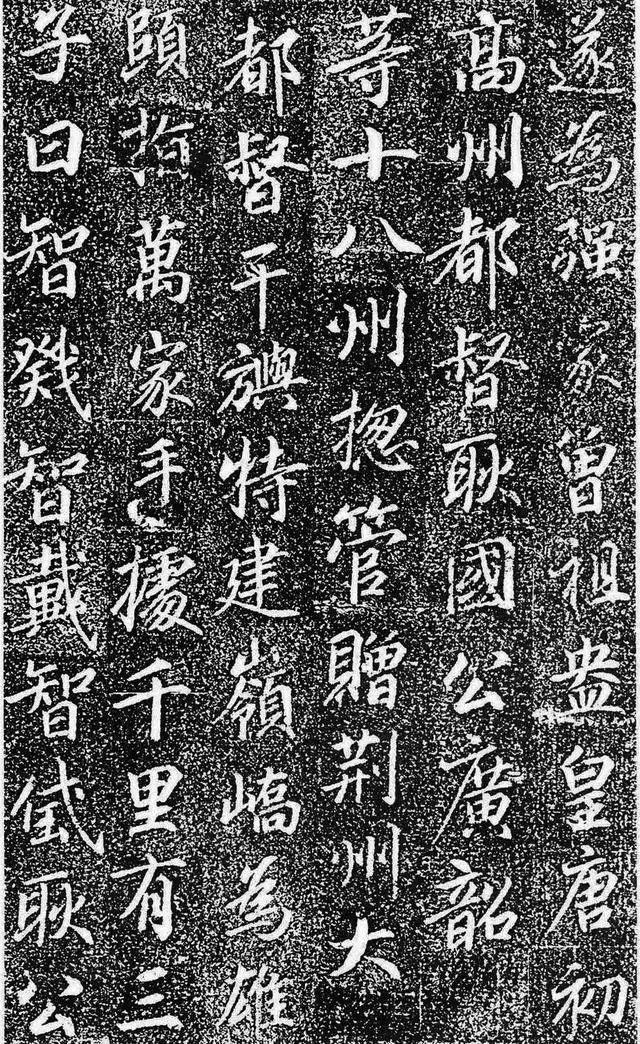 遂為强家曽祖盎皇唐初
高州都督耿國公廣韶
等十八州揔管贈荆州大
都督平𣄃特建嶺嶠為雄
頤指萬家手據千里有三
子曰智戣智戴智𢧵耿公